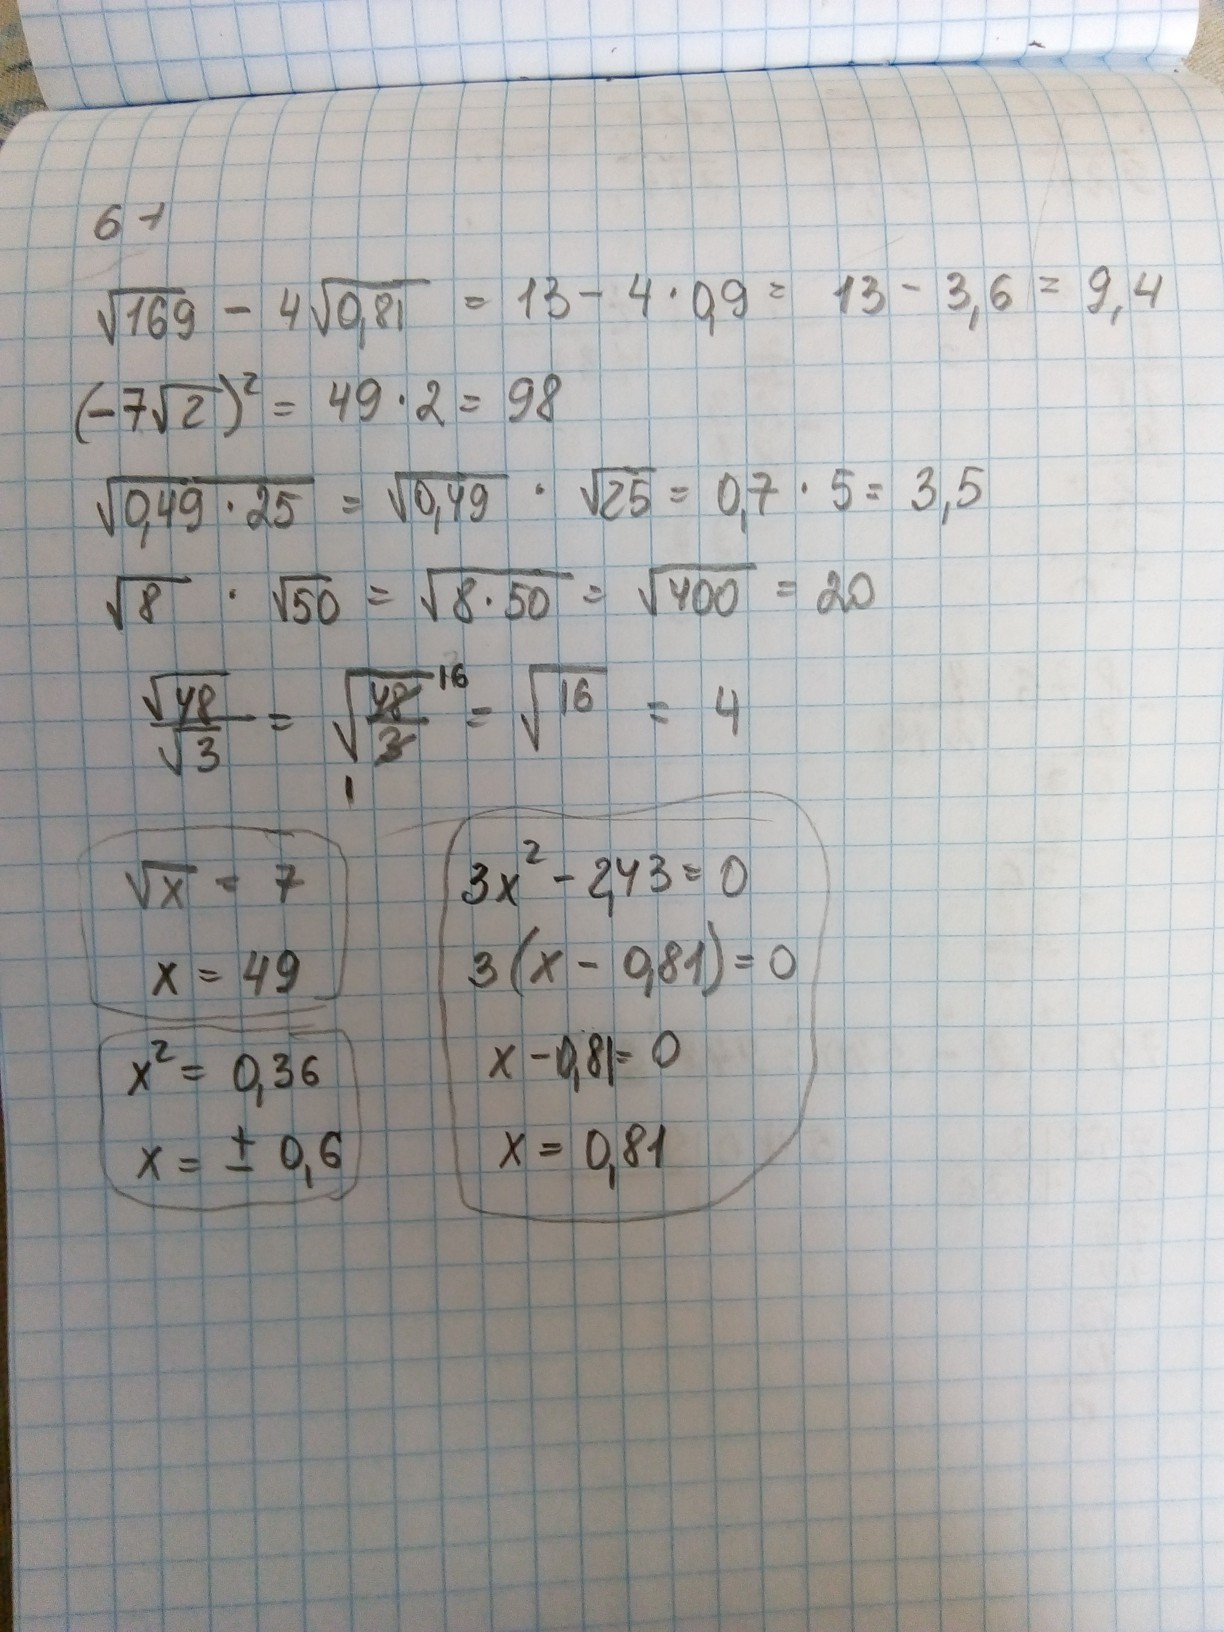 6-1
√169 - 4√0,81 = 13 - 4 · 0,9 = 13 - 3,6 = 9,4
(-7√2)² = 49 · 2 = 98
√0,49 · 25 = √0,49 · √25 = 0,7 · 5 = 3,5
√8 · √50 = √8 · 50 = √400 = 20
√48/√3 = √48/3 16 1 = √16 = 4
√x = 7
x = 49
x² = 0,36
x = ± 0,6
3x² - 2,43 = 0
3(x - 0,81) = 0
x - 0,81 = 0
x = 0,81